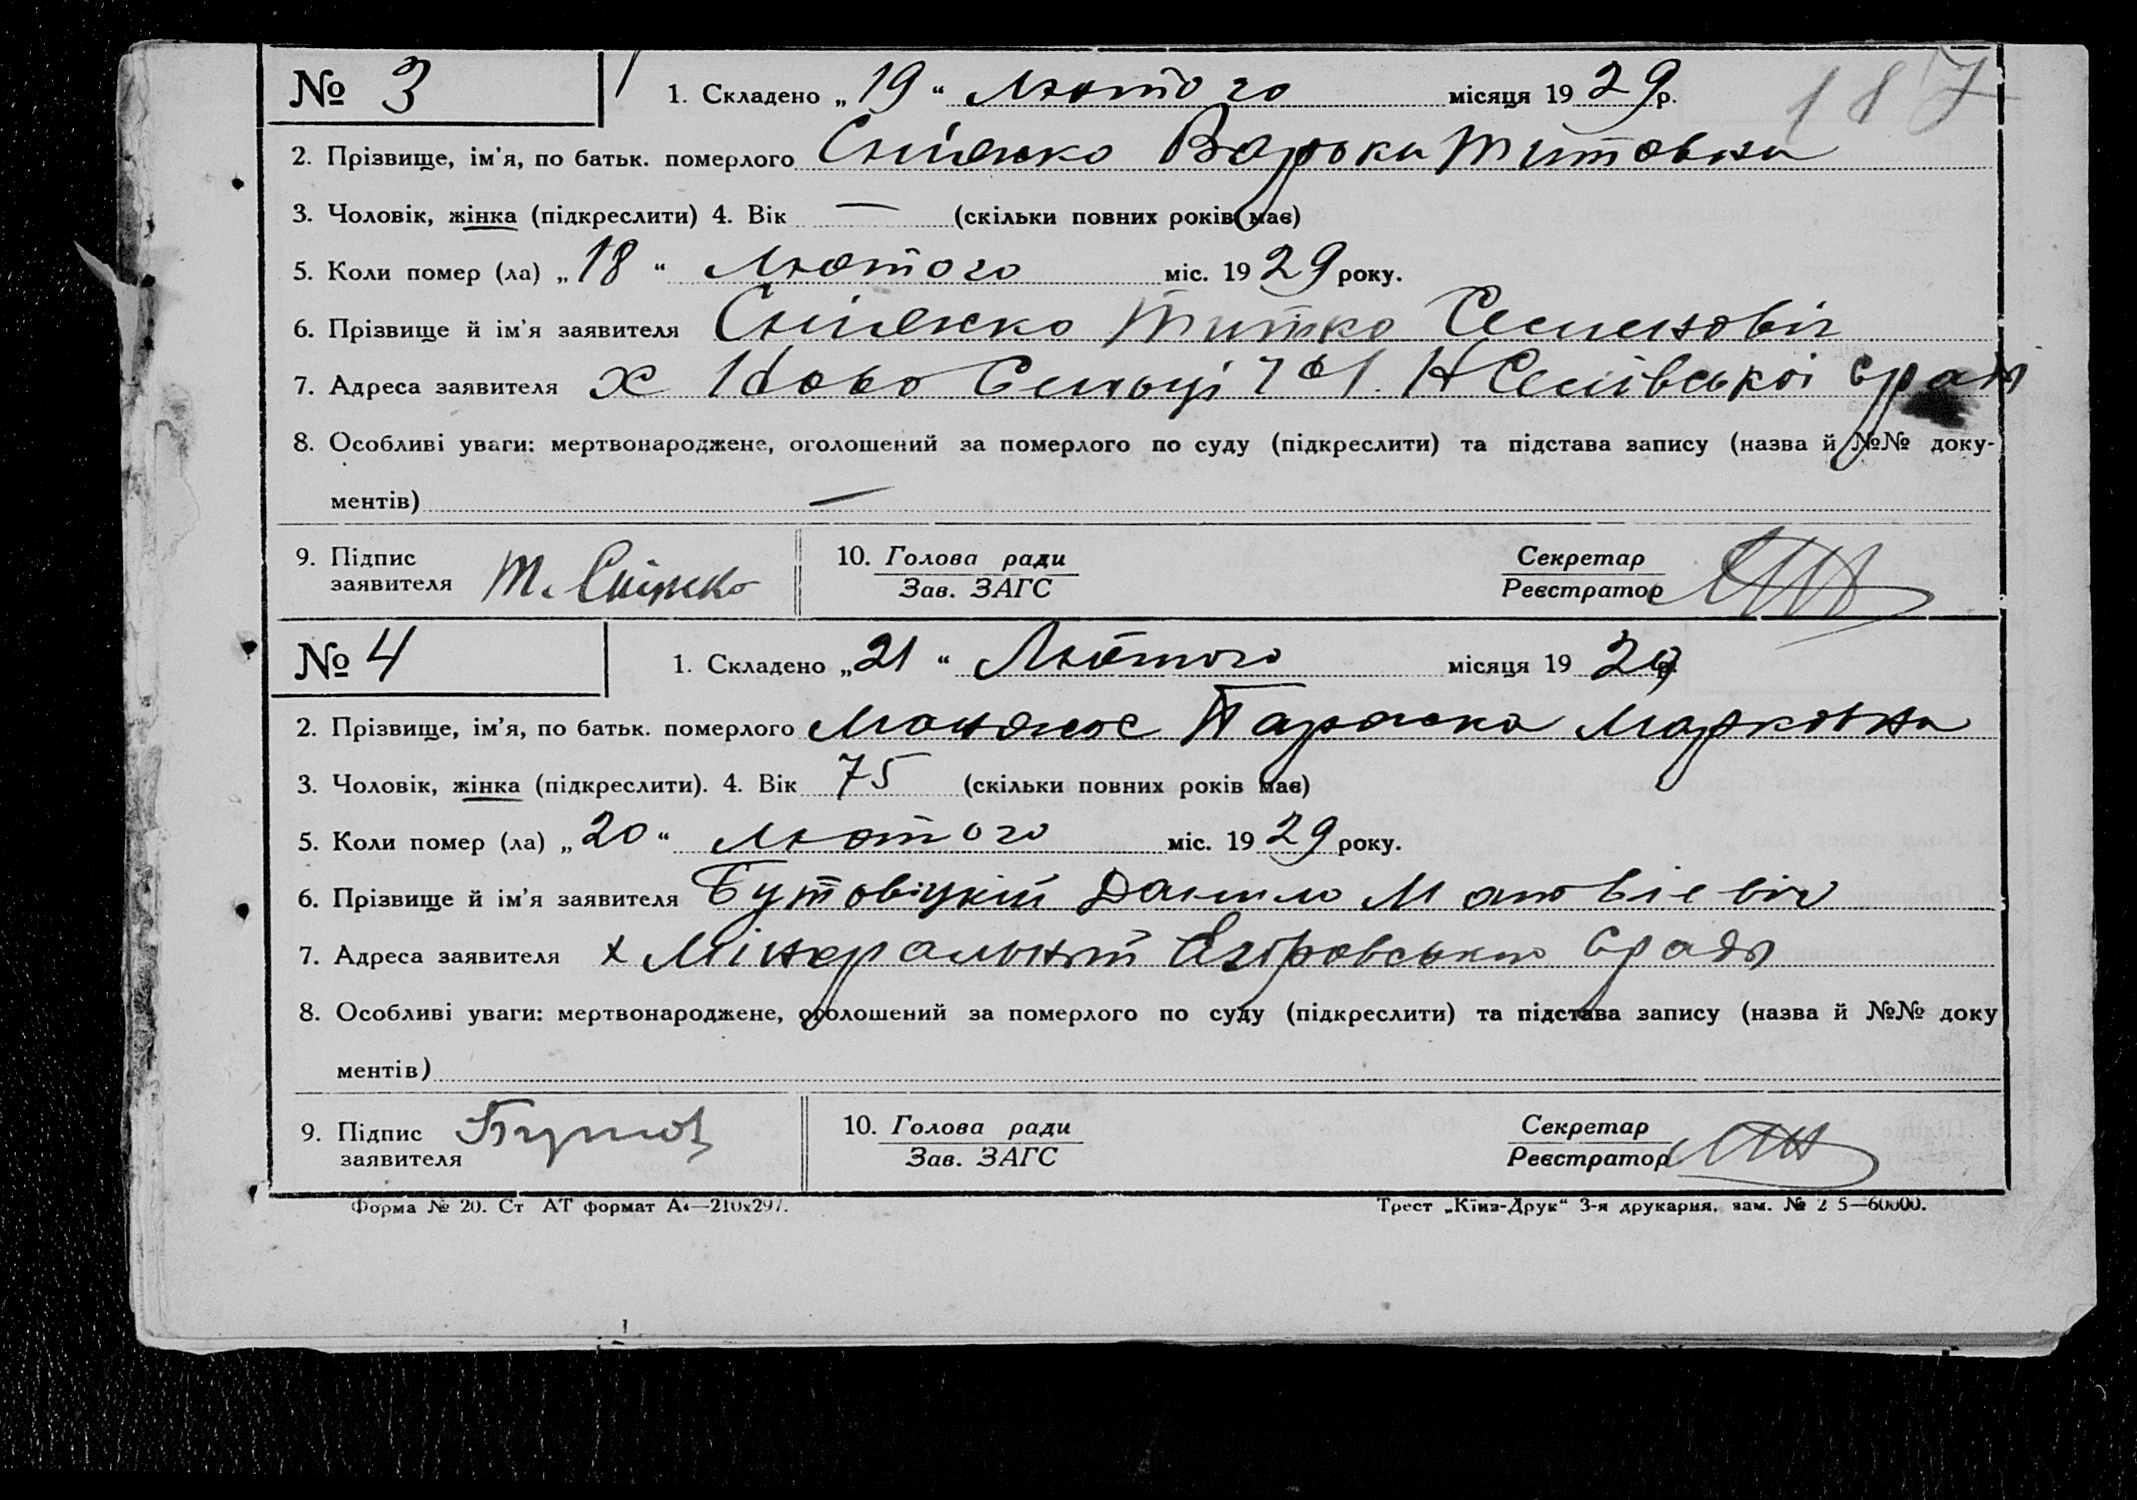 187
№ 3
1. Складено „19“ Лютого місяця 1929 р.
2. Прізвище, ім'я, по батьк. померлого Варька Титовна
3. Чоловік, жінка (підкреслити) 4. Вік — (скільки повних років має)
5. Коли помер (ла) „18“ Лютого міс. 1929 року.
6. Прізвище й ім'я заявителя Титко Семеновіч
7. Адреса заявителя х Ново сради
8. Особливі уваги: мертвонароджене, оголошений за померлого по суду (підкреслити) та підстава запису (назва й №№ доку-
ментів) —
9. Підпис
заявителя Т.
10. Голова ради
Зав. ЗАГС
Секретар
Реєстратор
№ 4
1. Складено „21“ Лютого місяця 1929 р.
2. Прізвище, ім'я, по батьк. померлого Параска Марковна
3. Чоловік, жінка (підкреслити). 4. Вік 75 (скільки повних років має)
5. Коли помер (ла) „20“ Лютого міс. 1929 року.
6. Прізвище й ім'я заявителя Бутовіцкій Данило Матвіевіч
7. Адреса заявителя х Мінеральний сради
8. Особливі уваги: мертвонароджене, оголошений за померлого по суду (підкреслити) та підстава запису (назва й №№ доку
ментів)
9. Підпис
заявителя Бутов
10. Голова ради
Зав. ЗАГС
Секретар
Реєстратор
Форма № 20. Ст АТ формат А4—210х297.
Трест „Київ-Друк“ 3-я друкарня, зам. № 2 5—60000.